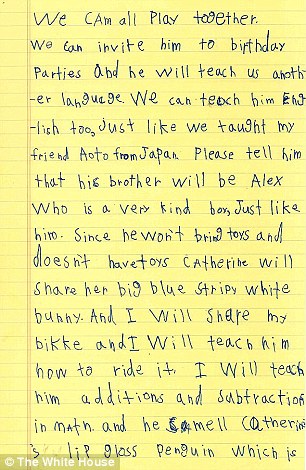 We CAn all Play together.
We can invite him to birthday
Parties and he will teach us anoth-
-er language. We can teach him Eng-
-lish too, Just like we taught my
friend Aoto from Japan. Please tell him
that his brother will be Alex
Who is a very kind boy, Just like
him. Since he won't bring toys and
doesn't have toys Catherine will
Share her big blue stripy white
bunny. And I Will Share my
bikke and I Will teach him
how to ride it. I Will teach
him additions and subtraction
in math. and he smell Catherine
's lip gloss Penguin which is
© The White House